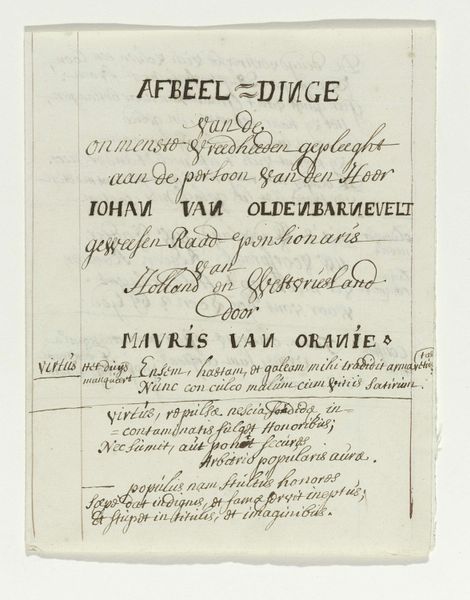 AFBEEL=DINGE
van de
onmenste Vredheden gepleeght
aan de persoon Van den Heer
IOHAN VAN OLDENBARNEVELT
geweesen Raad=pensionaris
van
Holland en Westvriesland
door
MAVRIS VAN ORANIE
Virtus Ensem, hastam, et galeam mihi tradidit arma
Nunc con culco malum cum vitiis Satirum
Virtus, repulsæ nescia sordidæ, in=
=contaminatis fulget Honoribus;
Nec sumit, aut ponit secures
Arbitrio popularis auræ.
populus nam stultus honores
Sæpe dat indignis, et famæ servit ineptus;
Et stupet in titulis, et imaginibus.